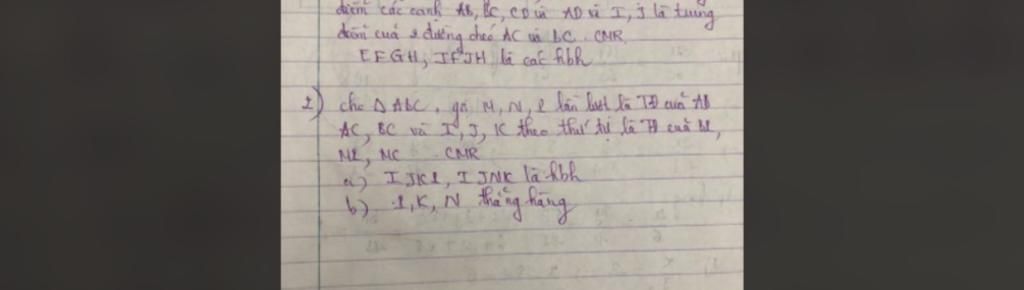 điểm các cạnh AB, BC, CD và AD và I, J là trung
điểm của 2 đường chéo AC và BC. CMR
EFGH, IFJH là các hbh
2) cho Δ ABC, gọi M, N, P lần lượt là TĐ của AB
AC, BC và I, J, K theo thứ tự là TĐ của
MP, MC CMR
a) IJKP, IJNK là hbh
b) P, K, N thẳng hàng